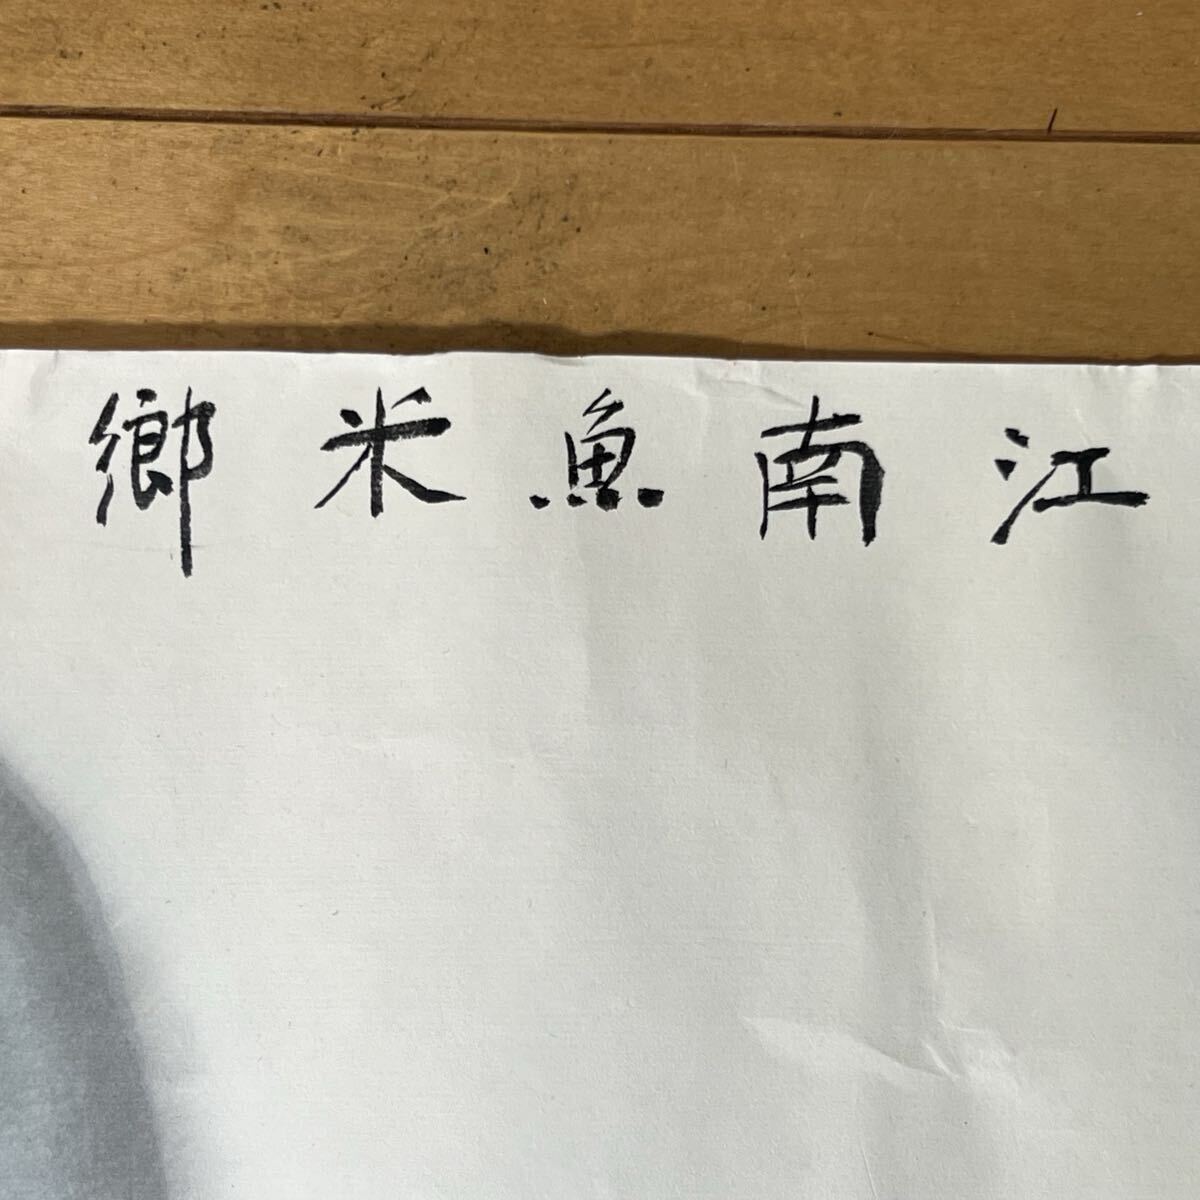 江南魚米鄉